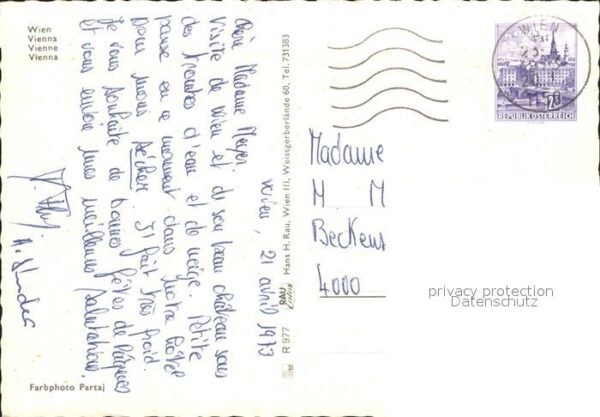 Wien
Vienna
Vienne
Vienna
Wien, 21 avril 1973
Chère Madame Meyer,
Visite de Wien et de son beau château sous
des trombes d'eau et de neige. Petite
pause en ce moment dans notre hôtel
pour nous sécher. Il fait très froid.
Je vous souhaite de bonnes fêtes de Pâques
et vous envoie mes meilleures salutations.
Farbphoto Partaj
R 977
RAU
Hans H. Rau, Wien III, Weissgerberlände 60, Tel. 731383
WIEN
REPUBLIK ÖSTERREICH
Madame
M. M
Beckens
4000
privacy protection
Datenschutz